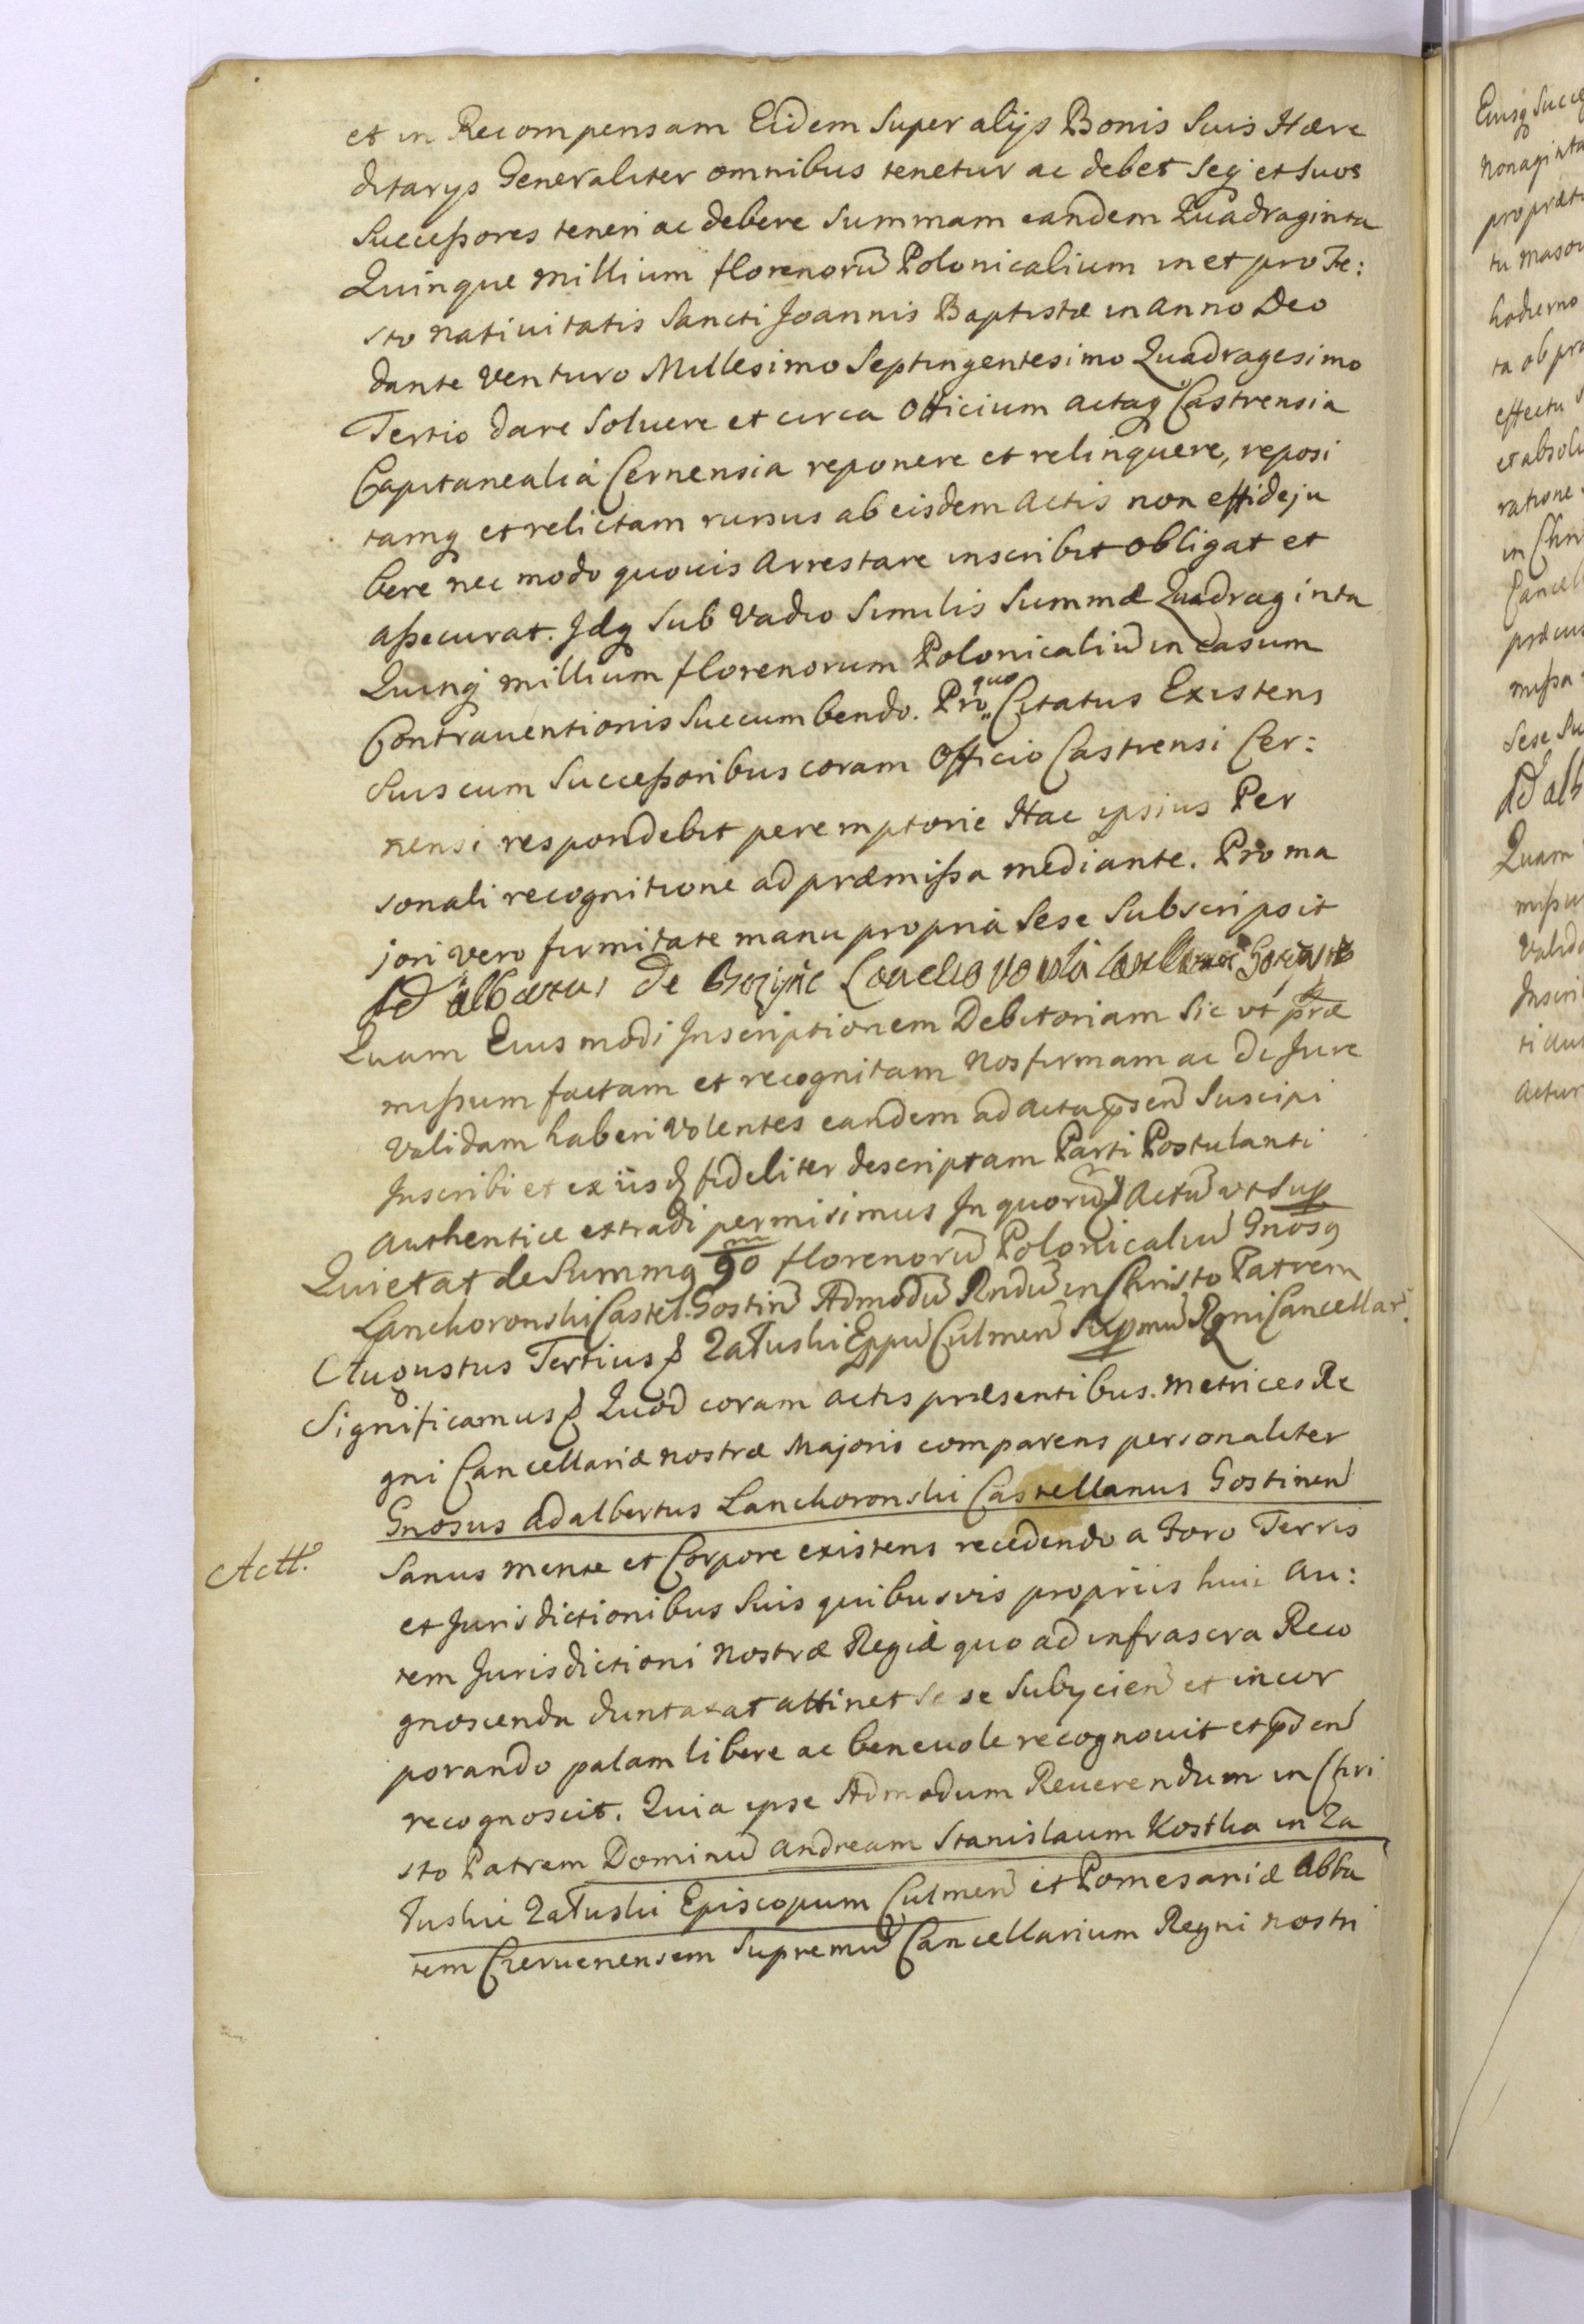 et in Recompensam Eidem Super alijs Bonis Suis Hære
ditarijs Generaliter omnibus tenetur ac debet Seq et Suos
Successores teneri ac debere Summam eandem Quadraginta
Quinque millium florenorū Polonicalium in et pro Fe:
sto nativitatis Sancti Joannis Baptistæ in anno Deo
dante venturo Millesimo Septingentesimo Quadragesimo
Tertio dare Soluere et circa Officium actaq Castrensia
Capitanealia Cernensia reponere et relinquere, reposi
tamq et relictam rursus ab eisdem Actis non effideju
bere nec modo quovis Arrestare inscribit obligat et
assecurat. Idq Sub Vadio Similis Summæ Quadraginta
Quinq millium florenorum Polonicaliū in Casum
Contrauentionis Succumbendo. Pro quo Citatus Existens
Suis cum Successoribus coram Officio Castrensi Cer:
nensi respondebit peremptorie Hac ipsius Per
sonali recognitione ad præmissa mediante. Pro ma
jori vero firmitate manu propria Sese Subscripsit
Adalbertus de Brzezie
Quam Eius modi Inscriptionem Debitoriam Sic ut præ
missum factam et recognitam nos firmam ac de Jure
validam haberi volentes eandem ad acta p̄sen Suscipi
Inscribi et ex iisdē fideliter descriptam Parti Postulanti
Authentice extradi permisimus In quorū Actū ut Sup
Quietat de Summa 90 m florenorū Polonicaliū Gnosq
Lanckoronski Castel. Gostin Admodū Rndū in Christo Patrem
Augustus Tertius Załuski Eppū Culmen Supmū Rgni Cancellar.
Significamus Quod coram actis præsentibus. Metrices Re
gni Cancellariæ nostræ Majoris comparens personaliter
Gnosus Adalbertus Lanckoronski Castellanus Gostinen
Actt. Sanus mente et Corpore existens recedendo a Foro Terris
et Jurisdictionibus Suis quibusvis propriis huic au:
tem Jurisdictioni nostræ Regiæ quo ad infrascra Reco
gnoscenda duntaxat attinet Sese Subjicien et incor
porando palam libere ac beneuole recognouit et p̄sen
recognoscit. Quia ipse Admodum Reuerendum in Chri
sto Patrem Dominū Andream Stanislaum Kostka in Za
łuskie Załuski Episcopum Culmen et Pomesaniæ Abba
tem Czeruenensem Supremū Cancellarium Regni nostri